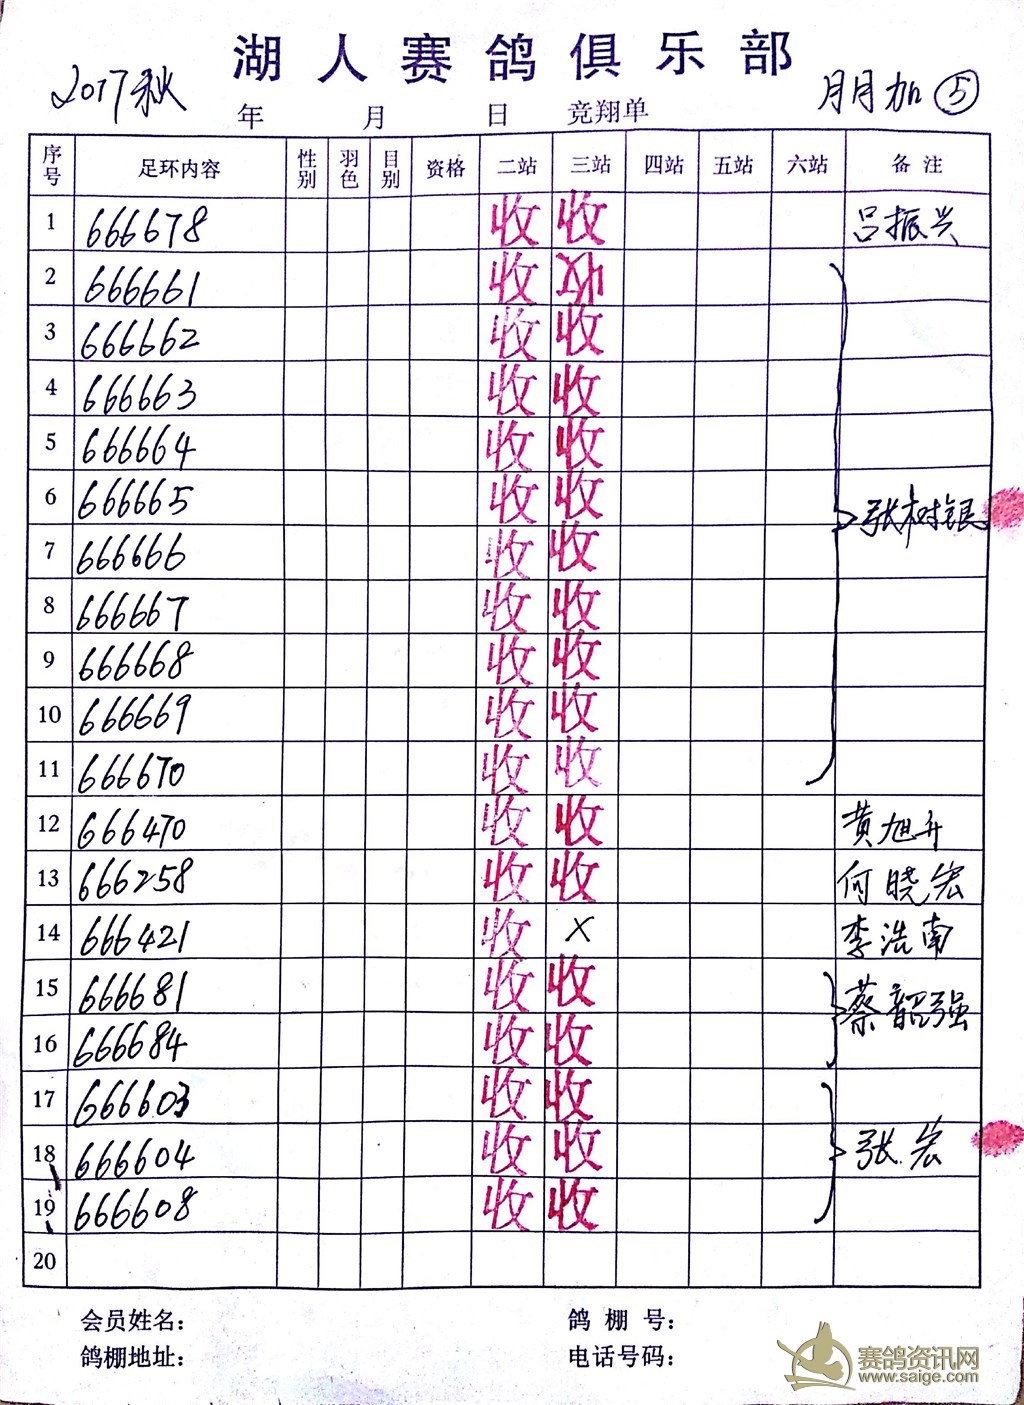 湖人赛鸽俱乐部
2017秋 年 月 日 竞翔单 月月加 ⑤
序号 足环内容 性别 羽色 目别 资格 二站 三站 四站 五站 六站 备注
1 666678 收 收 吕振兴
2 666661 收
3 666662 收 收
4 666663 收 收
5 666664 收 收
6 666665 收 收 张树银
7 666666 收 收
8 666667 收 收
9 666668 收 收
10 666669 收 收
11 666670 收 收
12 666470 收 收 黄旭升
13 666258 收 收 何晓宏
14 666421 收 X 李浩南
15 666681 收 收 蔡韶强
16 666684 收 收
17 666603 收 收
18 666604 收 收 张宏
19 666608 收 收
20
会员姓名： 鸽棚号：
鸽棚地址： 电话号码：
赛鸽资讯网
www.saige.com